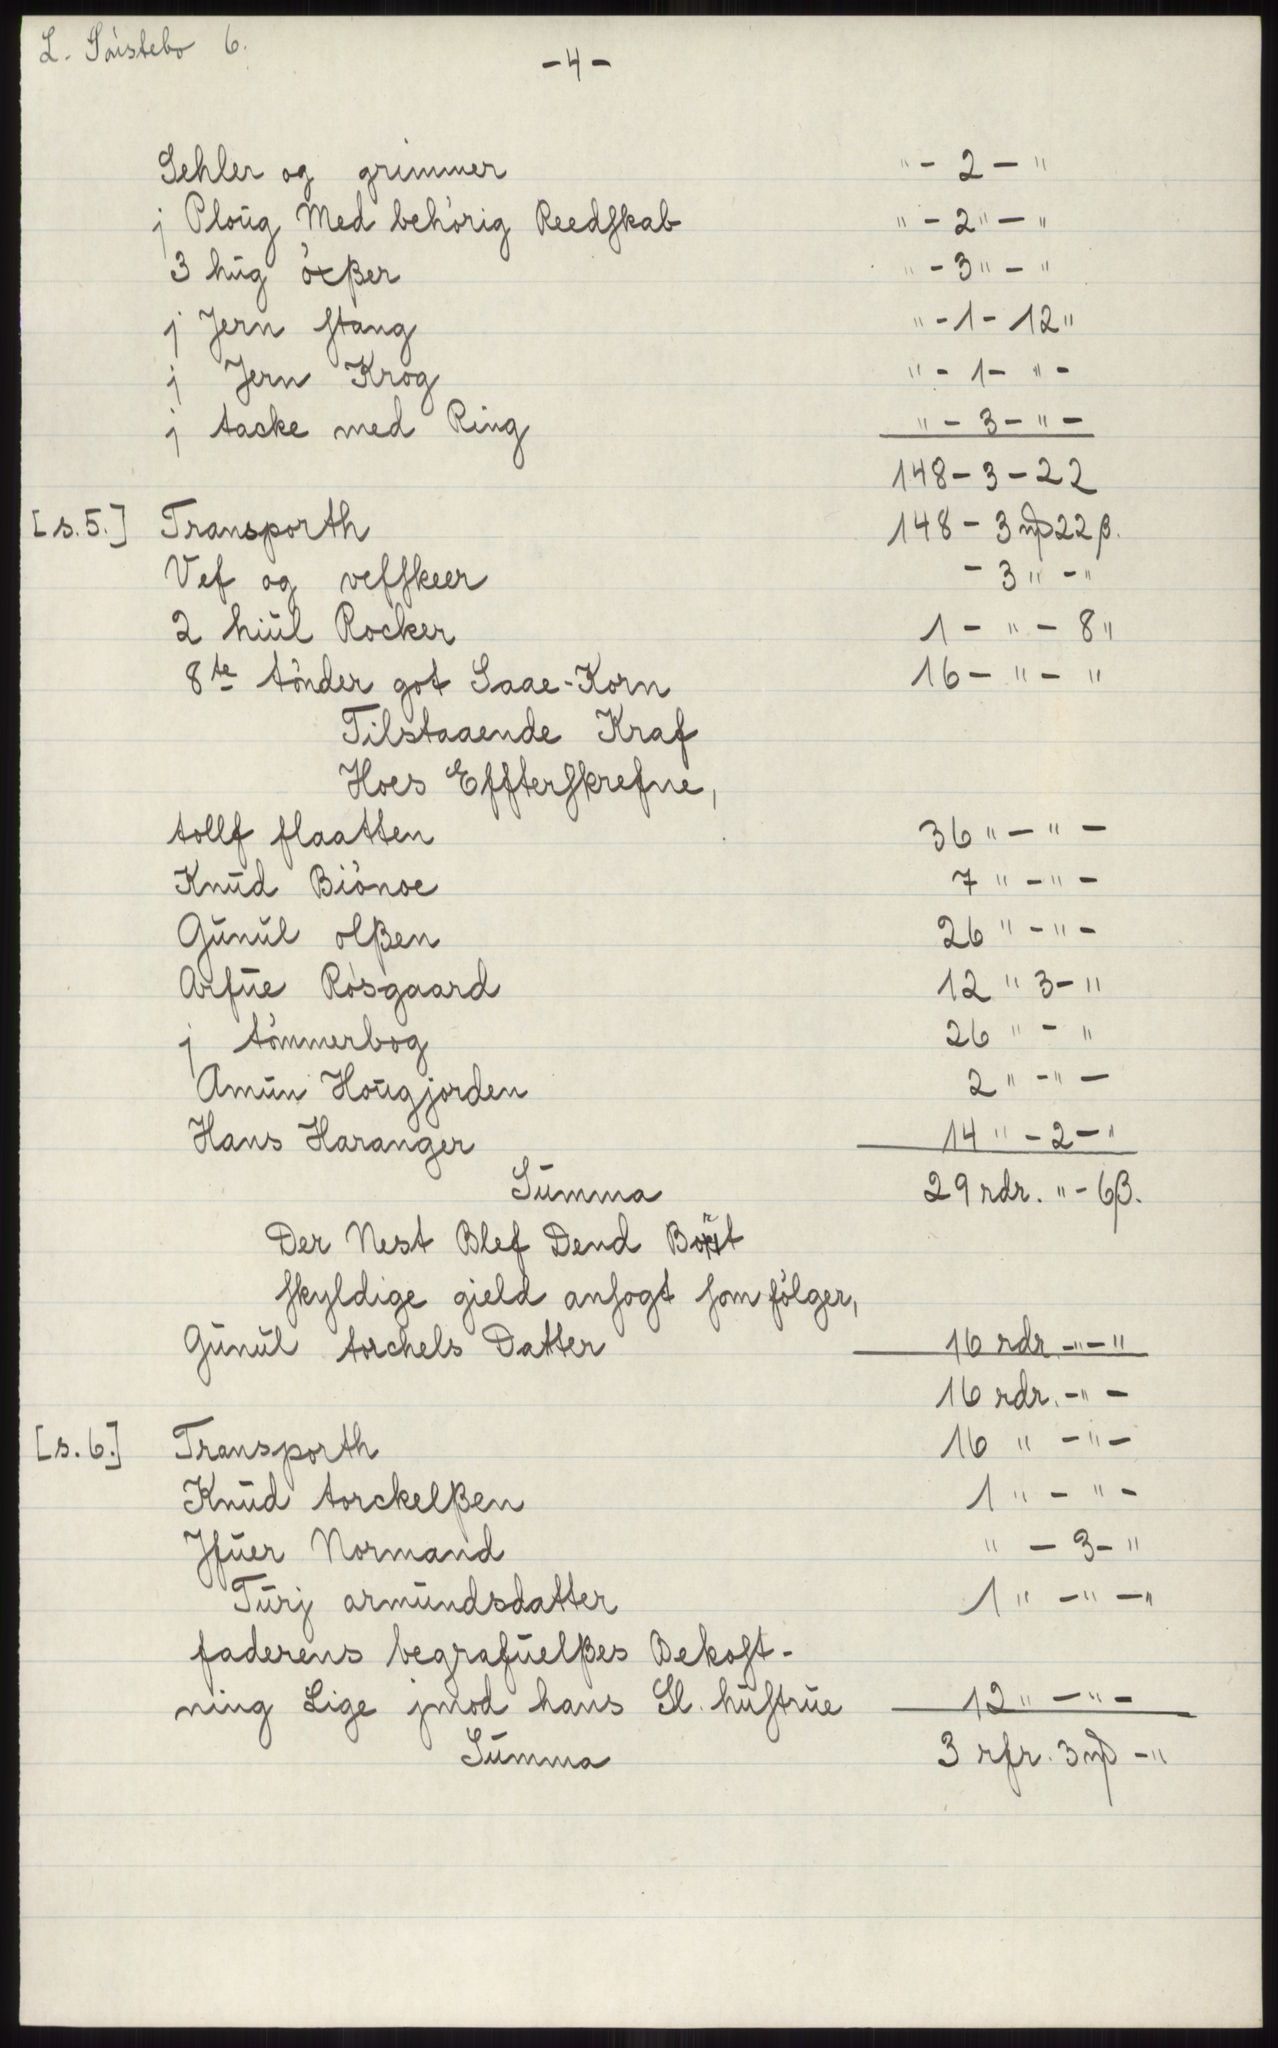 L. Söistebo 6.
-4-
Sehler og grimmer " - 2 - "
j Ploŭg Med behörig Reedskab " - 2 " - "
3 hŭg öxßer " - 3 " - "
j Jern stang " - 1 - 12 "
j Jern Krog " - 1 - " -
j tacke med Ring " - 3 - " -
148 - 3 - 22
[s.5.] Transporth 148 - 3 mβ 22 β.
Vef og vefskeer - 3 " - "
2 hiŭl Rocker 1 - " - 8 "
8te tönder got Saae-Korn 16 - " - "
Tilstaaende Kraf
Hoes Effterskrefne,
tollf flaatten 36 " - " -
Knŭd Biönoe 7 " - " -
Gŭnŭl olßen 26 " - " -
Arfŭe Rösgaard 12 " 3 - "
j tömmerbog 26 " - "
Amŭn Hoŭgjorden 2 " - " -
Hans Haranger 14 " - 2 - "
Sŭmma 29 rdr. " - 6 β.
Der Nest Blef Dend Boet
skyldige gield ansogt som fölger,
Gŭnŭl torchels Datter 16 rdr. - " - "
16 rdr. - " -
[s.6.] Transporth 16 " - " -
Knŭd torckelßen 1 " - " -
Jfŭer Normand " - 3 - "
Tŭrj armŭndsdatter 1 " - " - "
faderens begrafŭelßes Bekost-
ning Lige jmod hans Sl. hŭstrŭe 12 " - " -
Sŭmma 3 rfr. 3 mβ - "